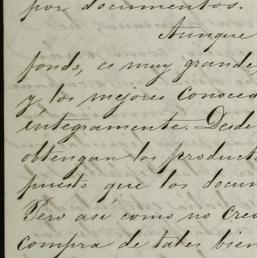 por documentos.
Aunque
fondo, es muy grande,
y, los mejores conoced
integramente. Desde
obtengan los product
puesto que los docum
Pero así como no cre
compra de tales bien